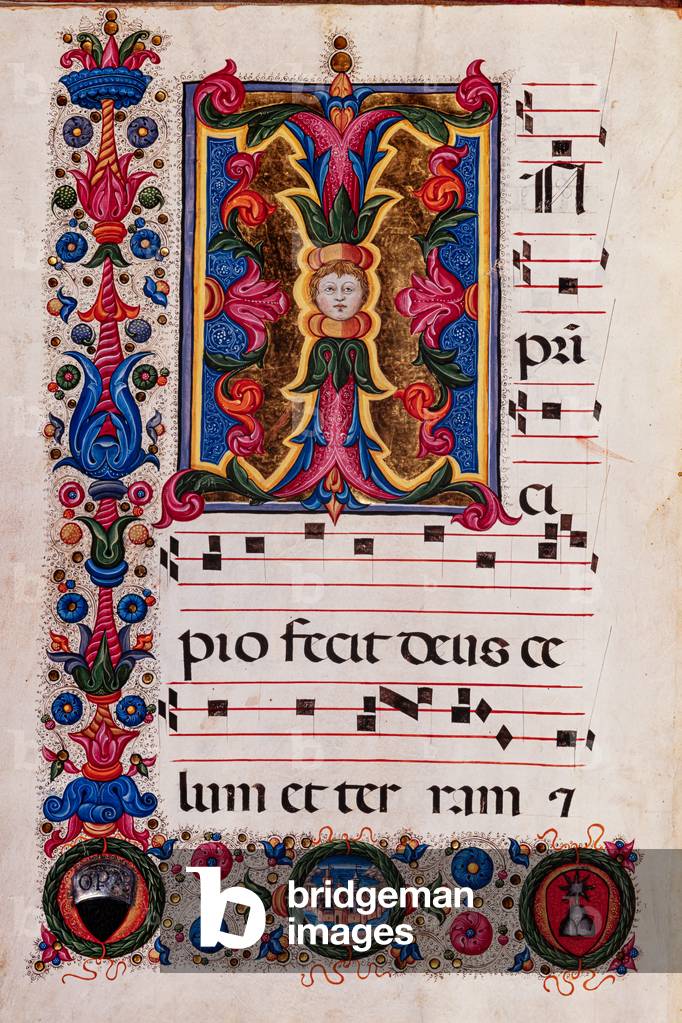 I
N
prī
ci
pio fecit deus ce
lum et ter ram ⁊
OPA
b bridgeman
images